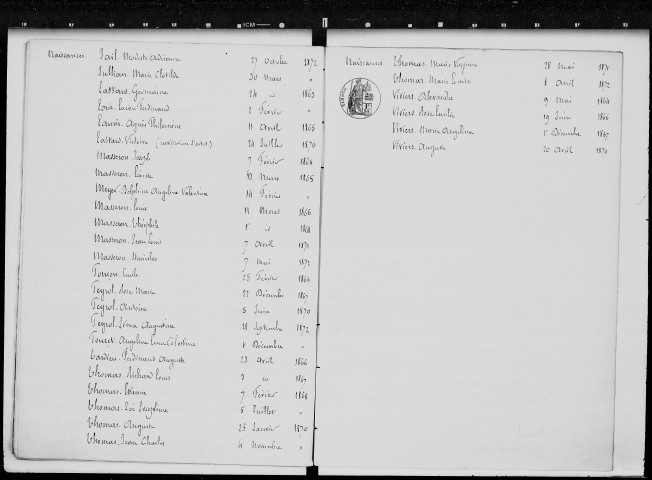 Naissances. Joil. Modeste Adrienne 27 Octobre 1872
Jullian. Marie Clotilde 30 Mars "
Lattard. Germaine 24 is 1863
Février "
Agnès Philomène 11 Avril 1866
Lattard. Victoire 24 Juillet 1870
Masseron. Joseph 7 Février 1864
Masseron. Louise 10 Mars 1865
Meyer. Delphine Angelina Valentine 14 Février "
Masseron. Louis 11 Mars 1866
Masseron. Théophile 1er is 1868
Masseron. Jean Louis 7 Avril 1871
Masseron. 7 Mai 1872
Émile 25 Février 1866
Peyrol. Rose Marie 22 Décembre 1867
Peyrol. Antoine 5 Juin 1870
Peyrol. Augustine 28 Septembre 1872
Angeline Célestine Décembre "
Tardieu. Ferdinand Auguste 23 Avril 1866
Thomas. Richard Louis 2 is 1867
Thomas. 7 Février 1868
Thomas. Joséphine 8 Juillet "
Thomas. Auguste 25 Janvier 1870
Thomas. Jean Charles 4 Novembre "
Naissances Thomas. Marie Virginie 28 Mai 1871
Thomas. Marie Louise 8 Avril 1872
Viviers. Alexandre 9 Mai 1864
Viviers. Rose 19 Juin 1866
Viviers. Marie Angelina 1er Décembre 1867
Viviers. Auguste 20 Avril 1870